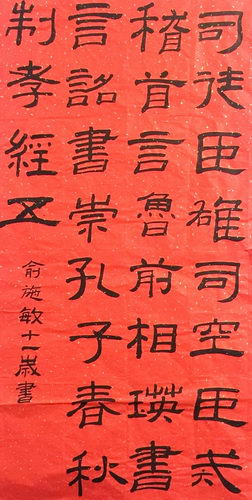 司徒臣雄司空臣戒
稽首言魯前相瑛書
言詔書崇孔子春秋
制孝經五
俞施敏十一歲書